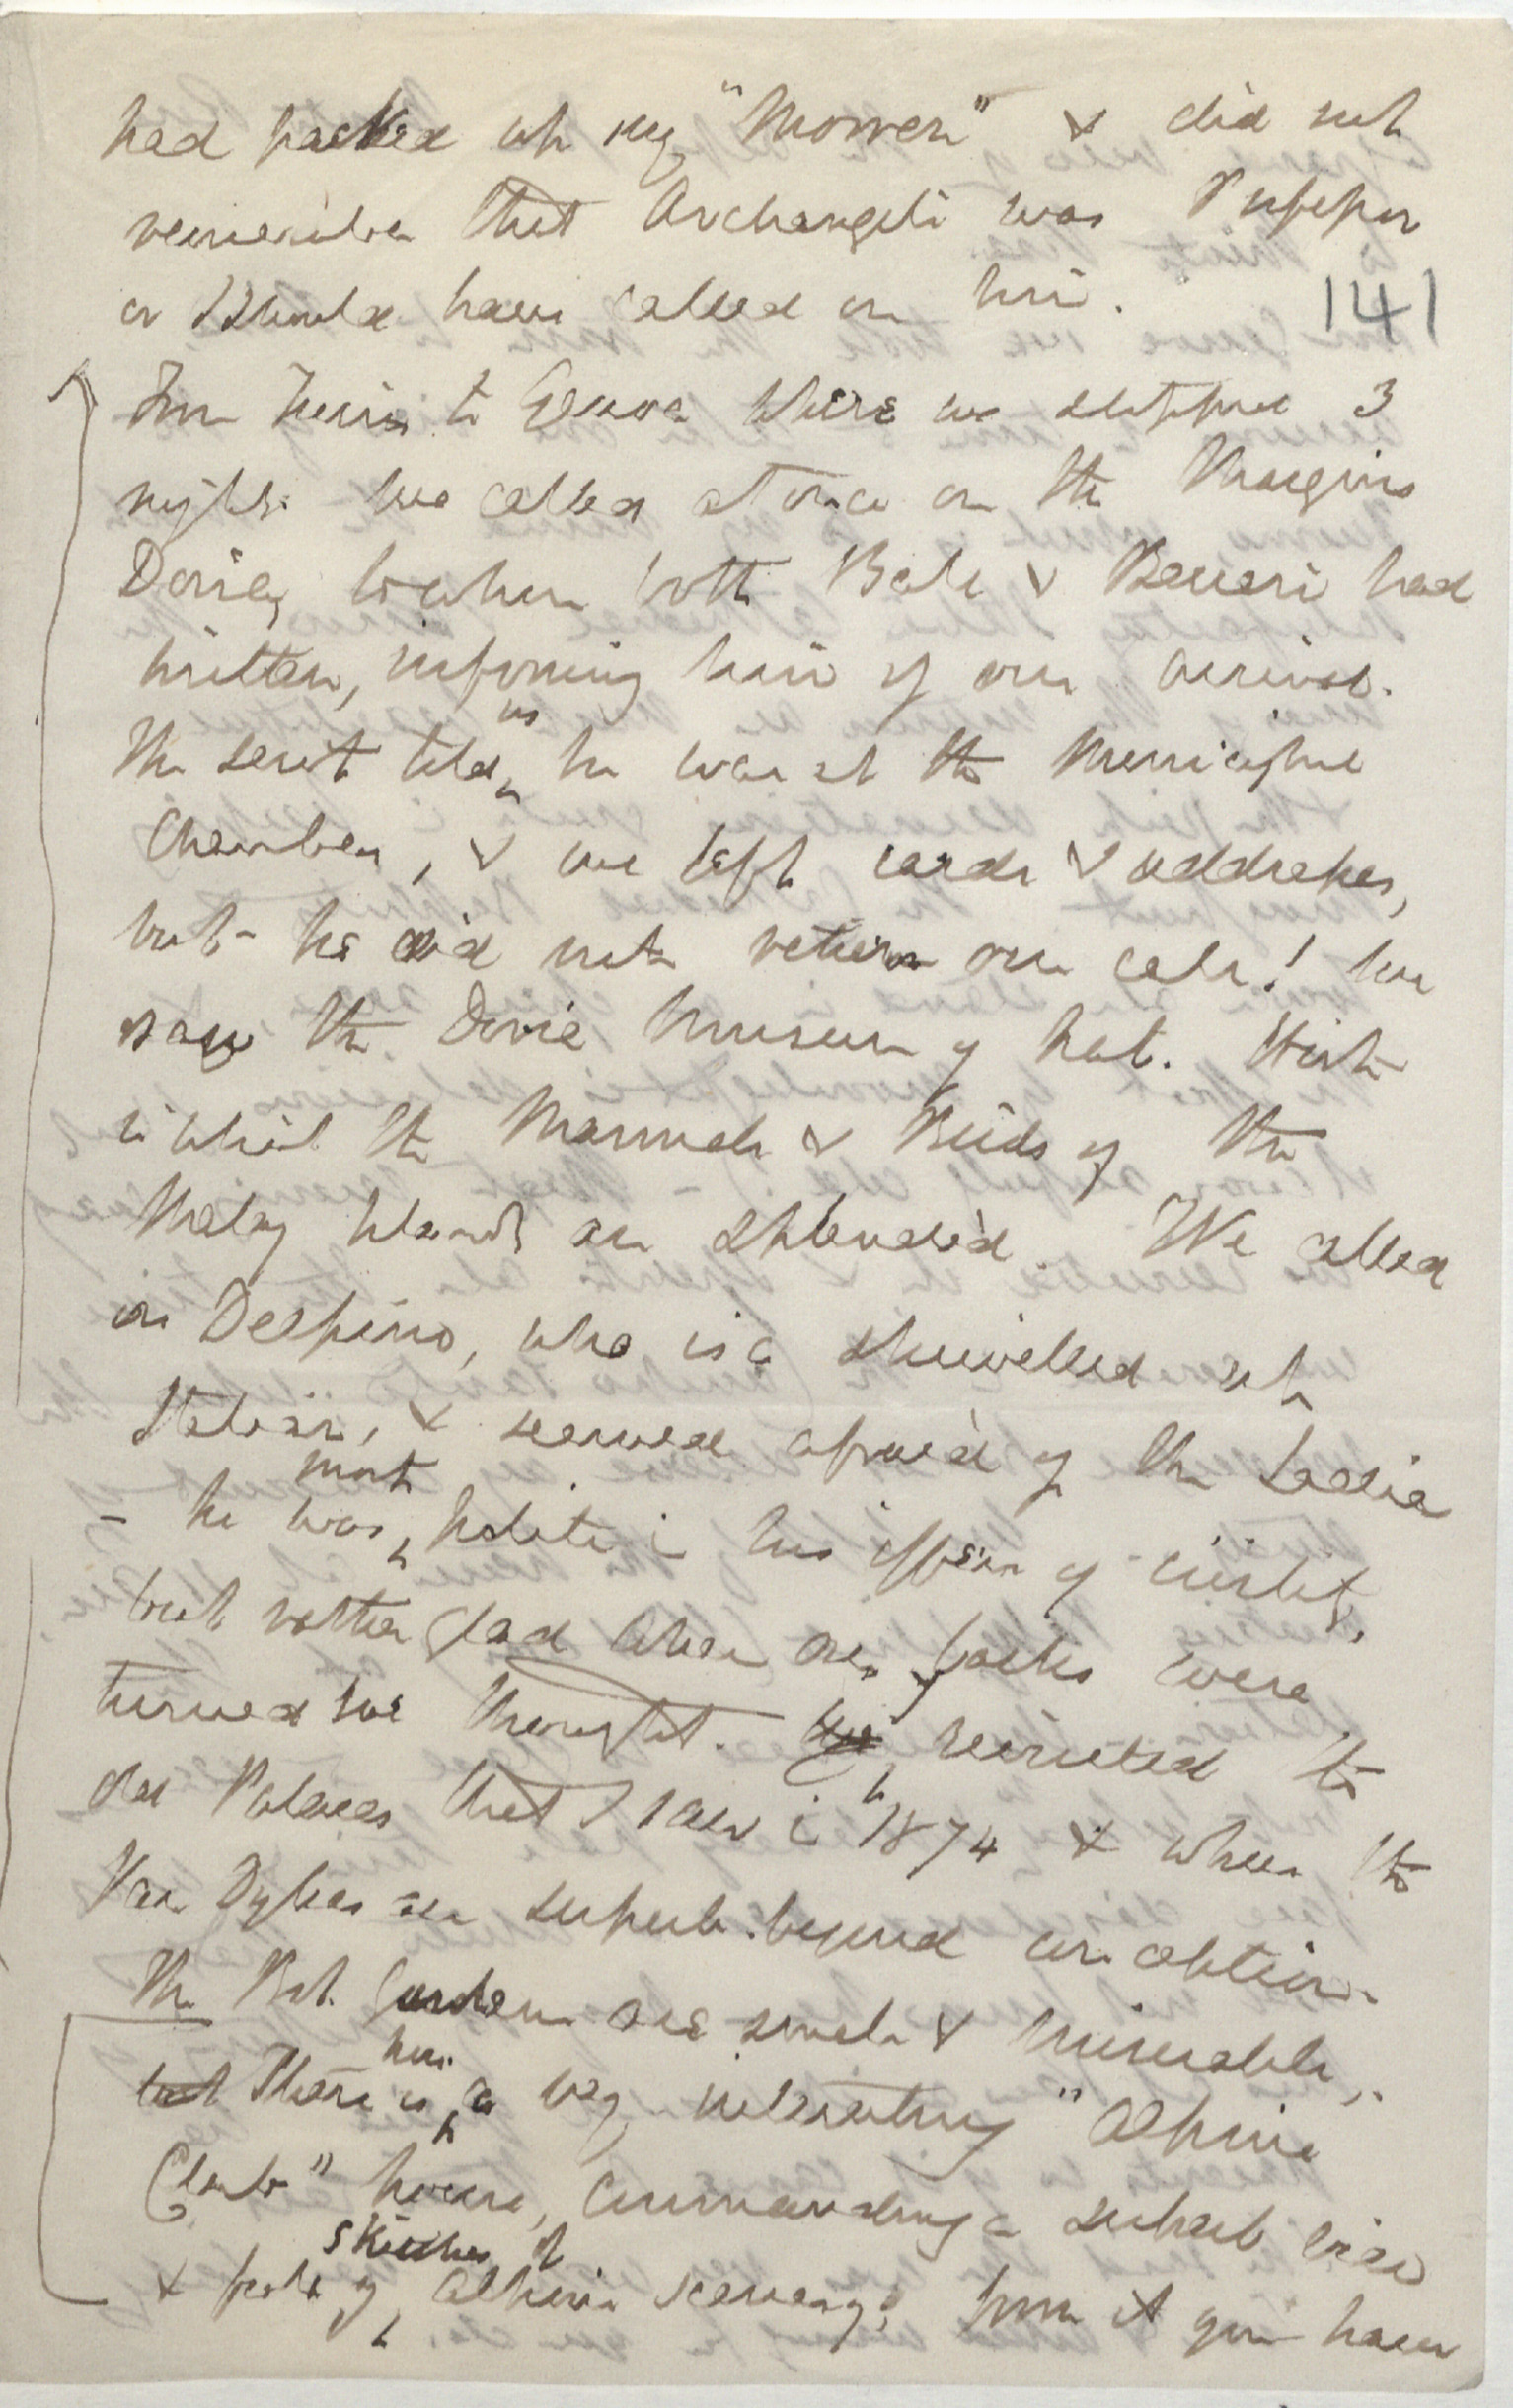 had packed up my "Morren" & did not
remember that Archangeli was Professor
or I should have called on him.
141
From Turin to Genoa where we stopped 3
nights. We called at once on the Marquis
Doria, to whom both Ball & Beccari had
written, informing him of our arrival.
The servt told us he was at the Municipal
Chamber, & we left cards & addresses,
but he did not return our call! We
saw the Doria Museum of Nat. Hist.
in which the Mammals & Birds of the
Malay Islands are splendid. We called
on Delpino, who is a shrivelled up
Italian, & seemed afraid of the Ladies
- he was most polite in his offers of civility,
but rather glad when our backs were
turned we thought. We revisited the
old Palaces that I saw in 1874 & where the
Van Dykes are superb beyond conception.
The Bot. Gardens are small & miserable,
but There is here a very interesting "Alpine
Club" house, commanding a superb view
& full of sketches of Alpine scenery; from it you have